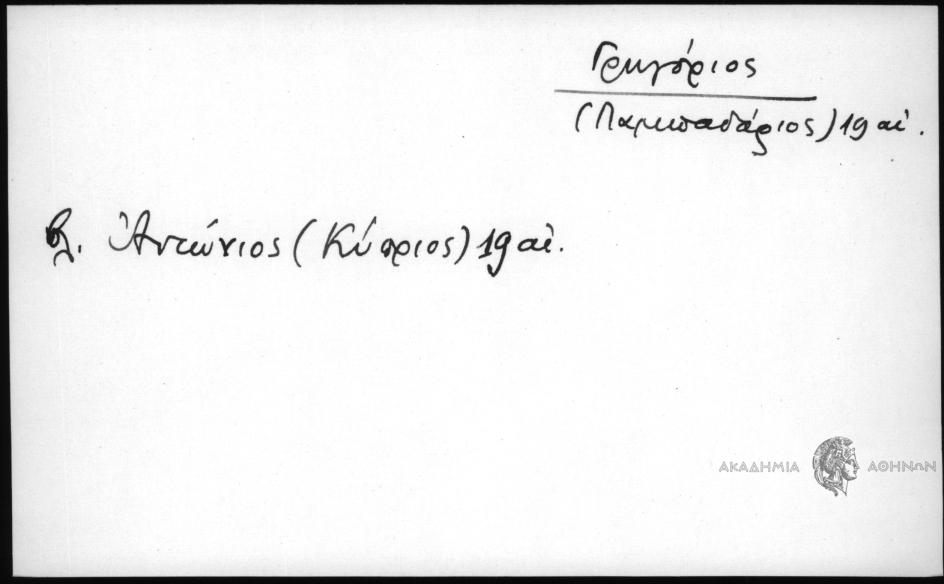 Γρηγόριος
(Λαμπαδάριος) 19 αἰ.
βλ. Ἀντώνιος (Κύπριος) 19 αἰ.
ΑΚΑΔΗΜΙΑ ΑΘΗΝΩΝ